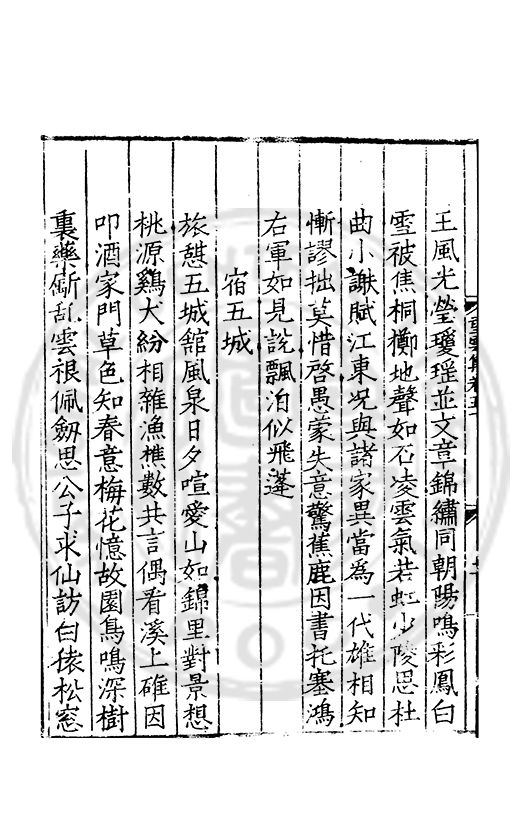 王風光瑩瓊瑶並文章錦繡同朝陽鳴彩鳳白
雪被焦桐擲地聲如石凌雲氣若虹少陵思杜
曲小謝賦江東况與諸家異當為一代雄相知
慚謬拙莫惜啓愚蒙失意驚蕉鹿因書托塞鴻
右軍如見說飄泊似飛蓬
宿五城
旅憇五城舘風泉日夕喧愛山如錦里對景想
桃源鷄犬紛相雜漁樵數共言偶看溪上碓因
叩酒家門草色知春意梅花憶故園鳥鳴深樹
裏藥斸亂雲根佩劒思公子求仙訪白猿松窓